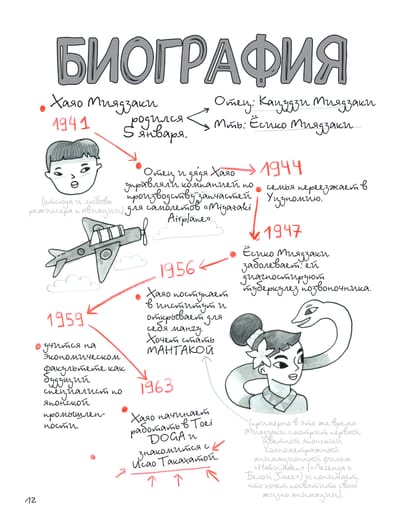 БИОГРАФИЯ
Хаяо Миядзаки
родился
5 января.
Отец: Кацудзи Миядзаки
Мть: Ёсико Миядзаки
1941
Отец и дядя Хаяо
управляли компанией по
производству запчастей
для самолетов «Miyazaki
Airplane».
(отсюда и любовь
режиссера к авиации)
1944
семья переезжает в
Уцуномию.
1947
Ёсико Миядзаки
заболевает, ей
диагностируют
туберкулез позвоночника.
1956
Хаяо поступает
в институт и
открывает для
себя мангу.
Хочет стать
МАНГАКОЙ
1959
учится на
экономическом
факультете как
будущий
специалист по
японской
промышлен-
ности.
1963
Хаяо начинает
работать в Toei
DOGA и
знакомится с
Исао Такахатой.
(примерно в это же время
Миядзаки смотрит первый
цветной японский
полнометражный
анимационный фильм
(«Легенда о
Белой Змее») и понимает,
что хочет посвятить свою
жизнь анимации).
12